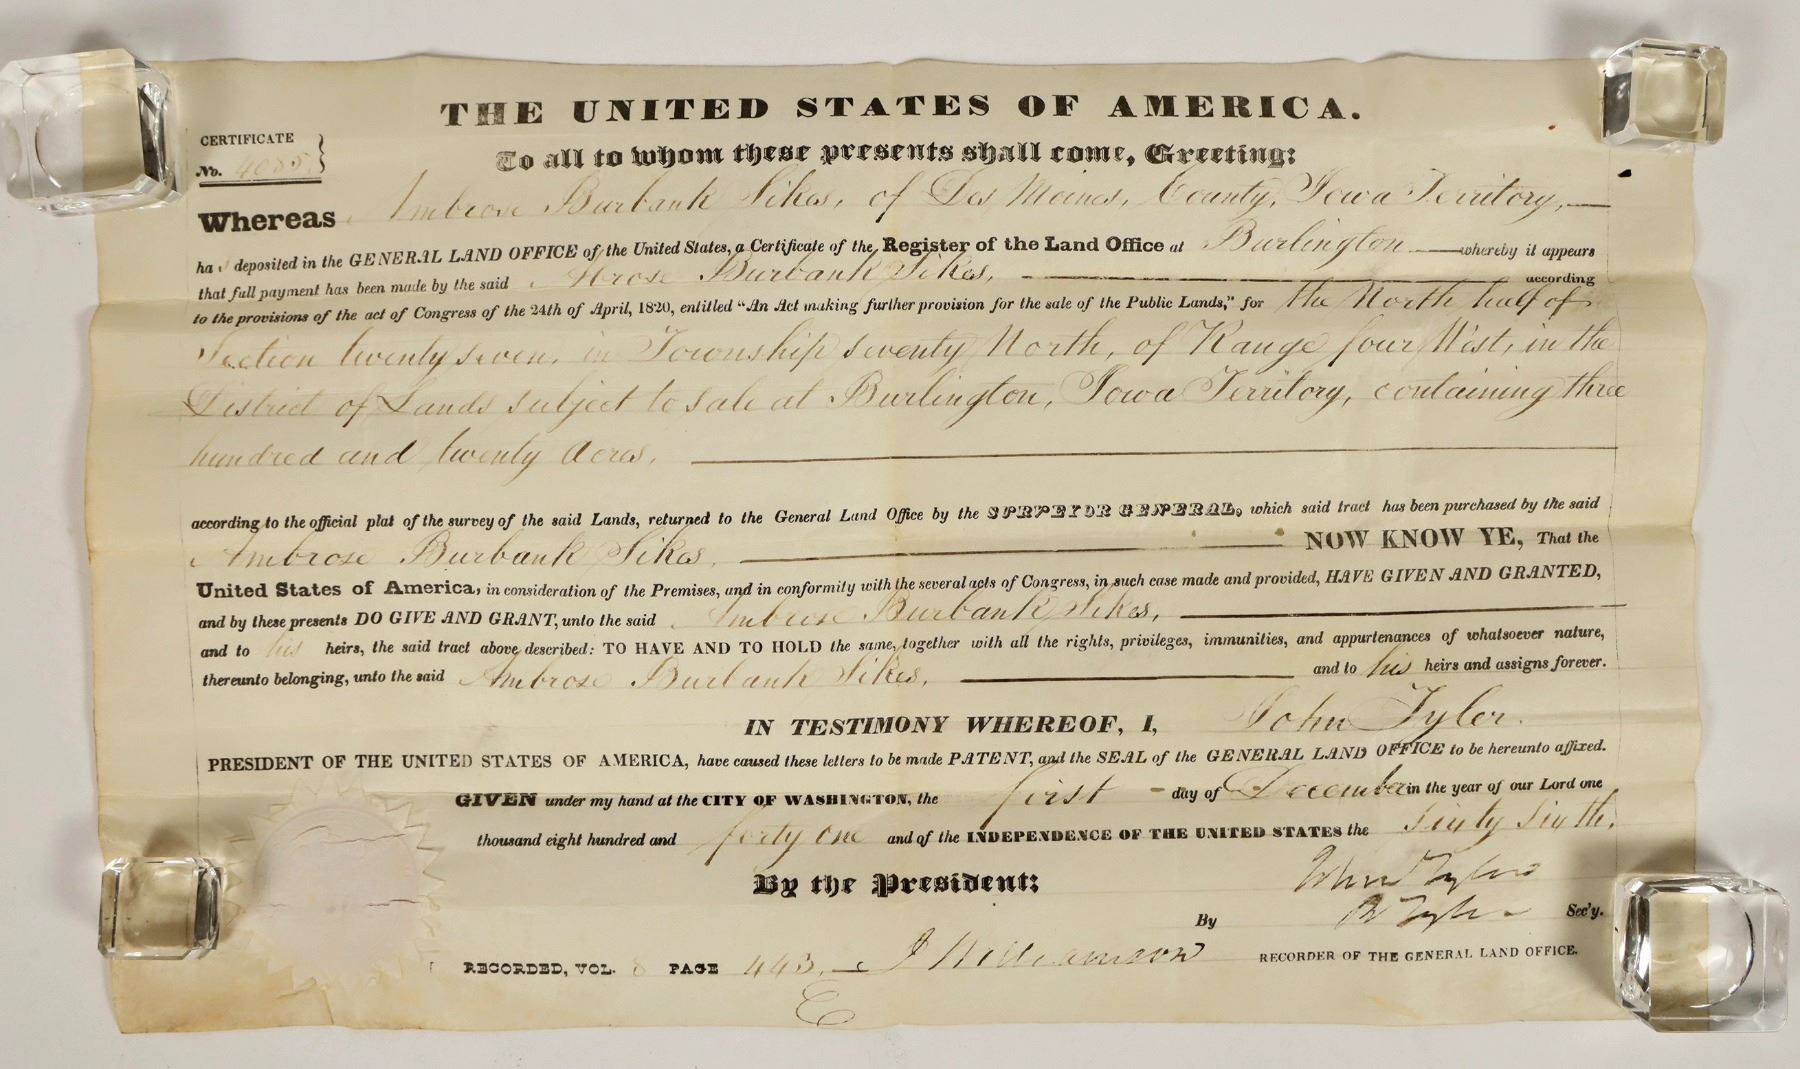 THE UNITED STATES OF AMERICA.
CERTIFICATE
No. 4085.
To all to whom these presents shall come, Greeting:
Whereas Ambrose Burbank Sikes, of Des Moines, County, Iowa Territory,
ha s deposited in the GENERAL LAND OFFICE of the United States, a Certificate of the Register of the Land Office at Burlington whereby it appears
that full payment has been made by the said Abrose Burbank Sikes, according
to the provisions of the act of Congress of the 24th of April, 1820, entitled "An Act making further provision for the sale of the Public Lands," for the North half of
Section twenty seven, in Township seventy North, of Range four West, in the
District of Lands subject to sale at Burlington, Iowa Territory, containing three
hundred and twenty Acres,
according to the official plat of the survey of the said Lands, returned to the General Land Office by the SURVEYOR GENERAL, which said tract has been purchased by the said
Ambrose Burbank Sikes, NOW KNOW YE, That the
United States of America, in consideration of the Premises, and in conformity with the several acts of Congress, in such case made and provided, HAVE GIVEN AND GRANTED,
and by these presents DO GIVE AND GRANT, unto the said Ambrose Burbank Sikes,
and to his heirs, the said tract above described: TO HAVE AND TO HOLD the same, together with all the rights, privileges, immunities, and appurtenances of whatsoever nature,
thereunto belonging, unto the said Ambrose Burbank Sikes, and to his heirs and assigns forever.
IN TESTIMONY WHEREOF, I, John Tyler.
PRESIDENT OF THE UNITED STATES OF AMERICA, have caused these letters to be made PATENT, and the SEAL of the GENERAL LAND OFFICE to be hereunto affixed.
GIVEN under my hand at the CITY OF WASHINGTON, the first day of December in the year of our Lord one
thousand eight hundred and forty one and of the INDEPENDENCE OF THE UNITED STATES the sixty sixth.
By the President: John Tyler
By R Tyler Sec'y.
RECORDED, VOL. 8 PAGE 443. J Williamson RECORDER OF THE GENERAL LAND OFFICE.